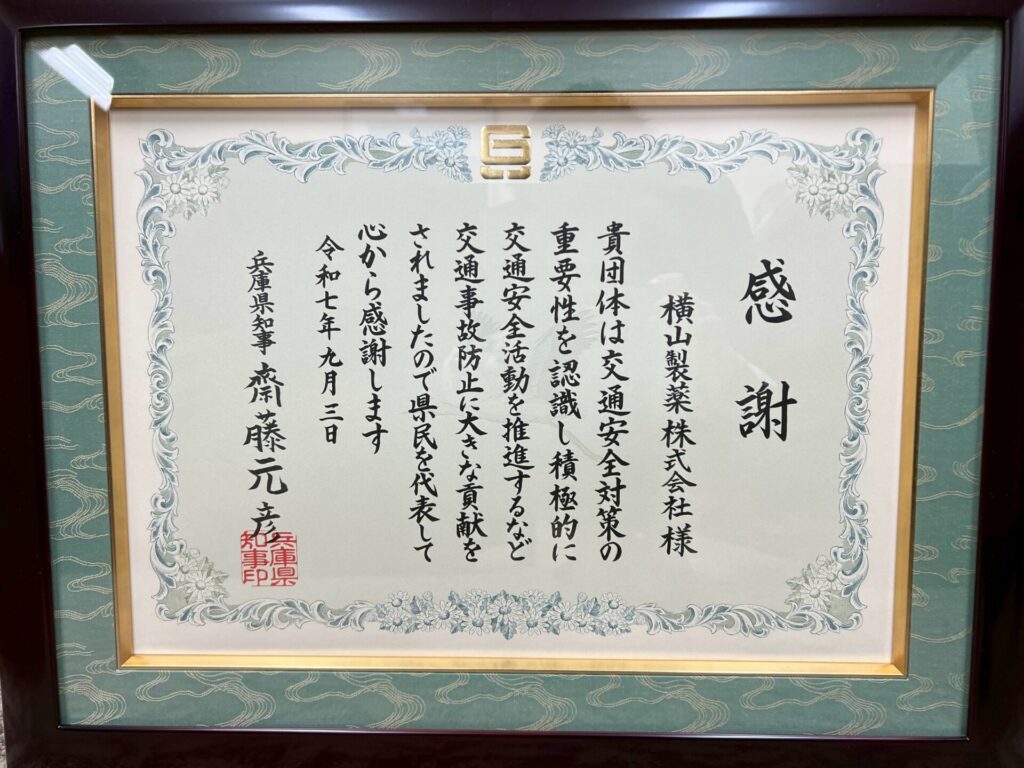 感謝
横山製薬株式会社様
貴団体は交通安全対策の
重要性を認識し積極的に
交通安全活動を推進するなど
交通事故防止に大きな貢献を
されましたので県民を代表して
心から感謝します
令和七年九月三日
兵庫県知事 齋藤元彦
兵庫県
知事印